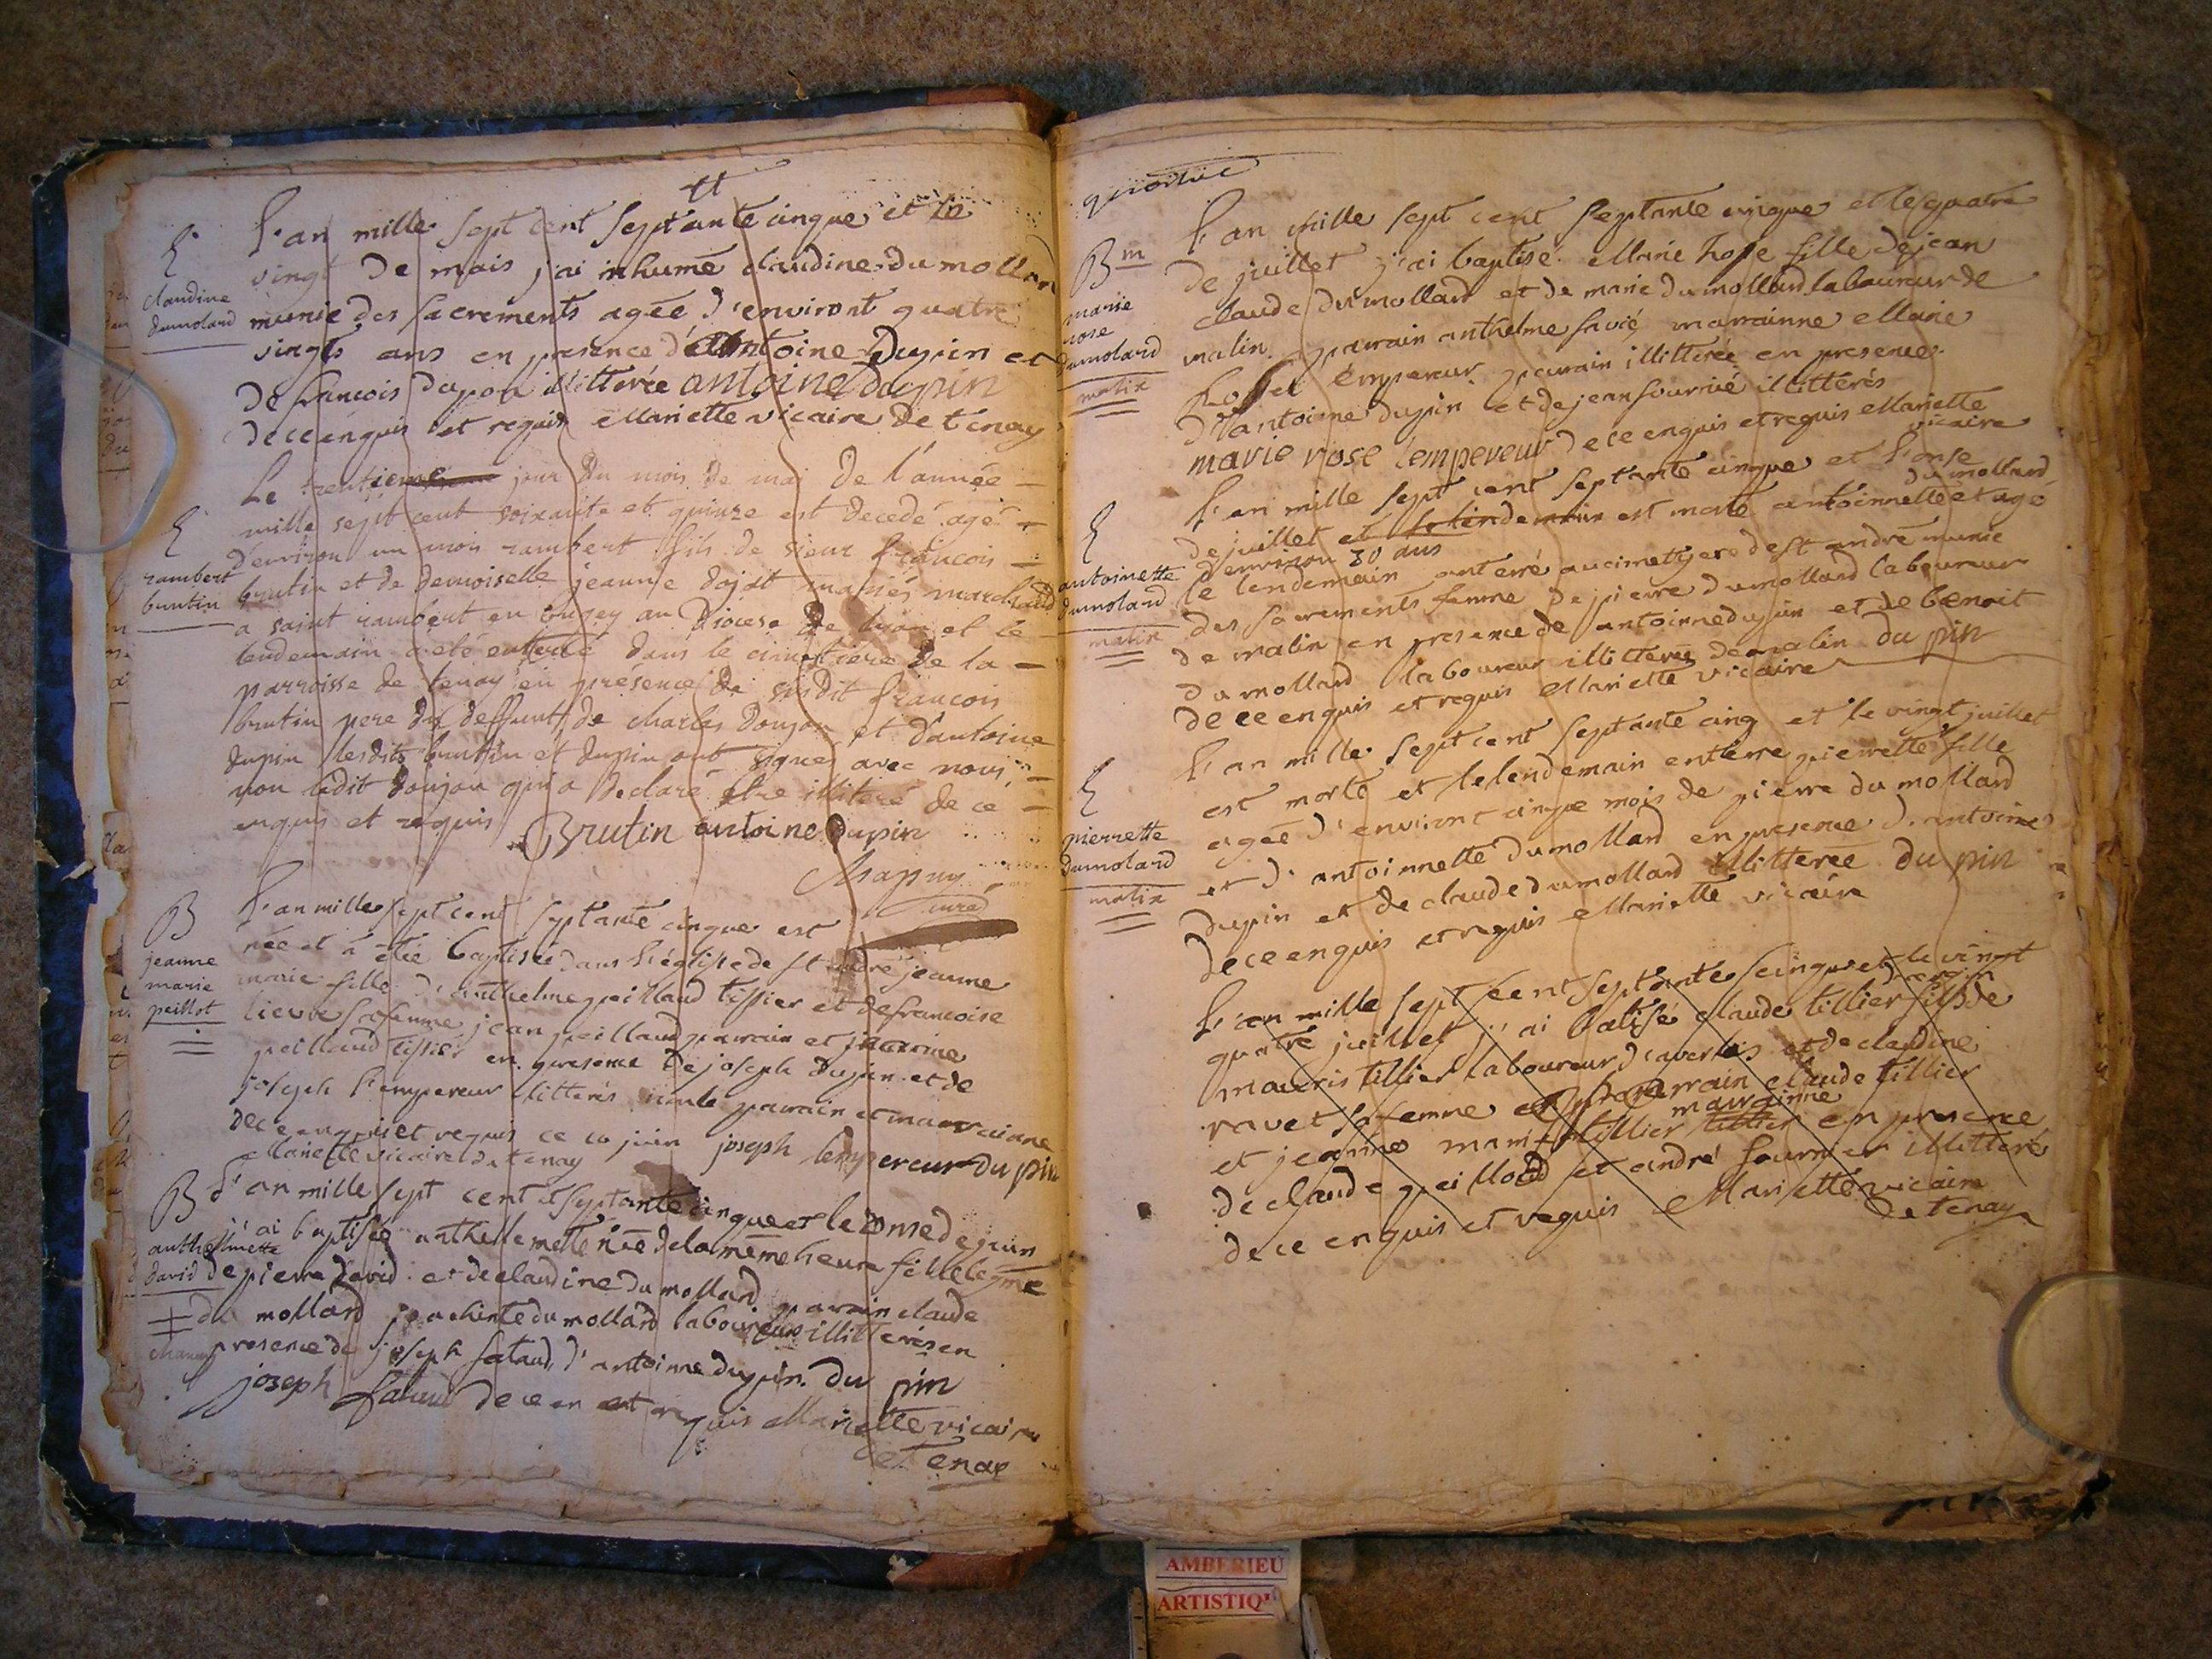 E
claudine
dumolard
L'an mille sept cent septante cinque et le
vingt de mais j'ai inhumé claudine du mollard
munie des sacrements agée d'environt quatre
vingts ans en presence d'Antoine Dupin et
de francois illitterée antoine dupin
de ce enquis et requis Mariette vicaire de tenay
E
rambert
brutin
Le trentieme jour du mois de mai de l'année
mille sept cent soixante et quinze est decedé agé
d'environ un mois rambert fils de sieur francois
brutin et de demoiselle jeanne dojat mariés marchand
a saint rambert en bugey au Diocese de lion et le
lendemain a été enterré dans le cimetière de la
parroisse de tenay en présence de susdit francois
brutin pere du deffunt, de charles doujon et d'antoine
dupin lesdits brutin et dupin ont signé avec nous,
non ledit doujon qui a declaré etre illiteré de ce
enquis et requis Brutin antoine dupin
Mapuy
curé
B
jeanne
marie
peillot
L'an mille sept cent septante cinque est
née et à étée baptisée dans l'église de st andré jeanne
marie fille d'anthelme peillaud tissier et de francoise
sa femme jean peillaud parrain et
peillaud tissier en presence de joseph dupin et de
joseph l'empereur illitterés parrain et marrainne
de ce enquis et requis ce 10 juin joseph lempereur du pin
Mariette vicaire de tenay
B
anthelmette
david
L'an mille sept cent septante cinque et le onze de juin
j'ai baptisée anthellemette née de la même heure fille legme
de pierre David et de claudine du mollard parrain claude
du mollard jachinte du mollard laboureurs illitterés en
presence de joseph fataud, d'antoinne dupin. du pin
joseph fataud de ce en et requis Mariette vicaire
de Tenay
B m
marie
rose
dumolard
malix
L'an mille sept cent septante cinque et le quatre
de juillet j'ai baptisé Marie Rose fille de jean
claude du mollard et de marie du mollard laboureur de
malin parrain anthelme savié marrainne Marie
Rose l'empereur parrain illitterée en presence
d'antoinne dupin et de jean fournié illitterés
marie rose lempereur de ce enquis et requis Mariette
vicaire
E
antoinette
dumolard
malix
L'an mille sept cent septante cinque et l'onse
de juillet et le lendemain est morte antoinnette du mollard et agé
d'environ 30 ans
le lendemain anterré au cimettyere de st andré munie
des sacrements femme de pierre dumollard laboureur
de malin en presence de antoinne dupin et de benoit
du mollard laboureur illitterés de malin du pin
de ce enquis et requis Mariette vicaire
E
pierrette
dumolard
malix
L'an mille sept cent septante cinq et le vingt juillet
est morte et le lendemain enterre pierrette fille
agée d'environt cinque mois de pierre du mollard
et d'antoinnette dumollard en presence d'antoine
dupin et de claude dumollard illitterée du pin
de ce enquis et requis Mariette vicaire
L'an mille sept cent septante cinque et le vingt
quatre juillet j'ai batisé claude tillier fils de
mauris tillier laboureur d'averlieis et de claudine
ravet sa femme parrain claude tillier
et jeanne mari tillier marrainne en presence
de claude peilloud et andré fournier illitteré
de ce enquis et requis Mariette vicaire
de tenay
AMBERIEU
ARTISTIQU